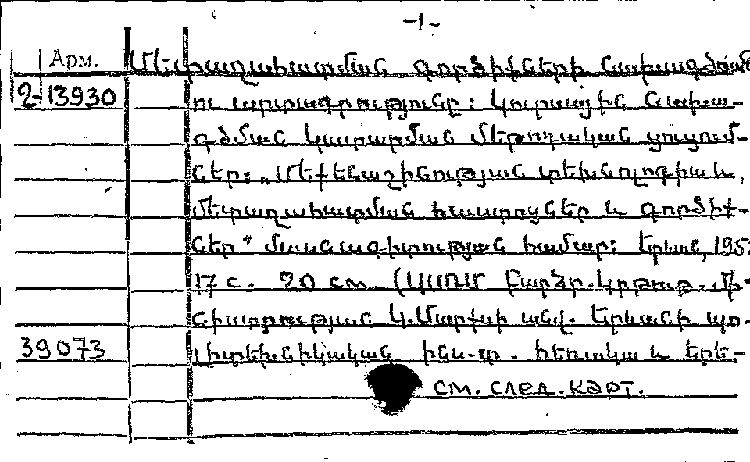 -1-
Арм. Մետաղահատման գործիքների նախագծումն
2-13930 ու արտադրությունը: Կուրսային նախա-
գծման կատարման մեթոդական ցուցում-
ներ: „Մեքենաշինության տեխնոլոգիա և,
մետաղահատման հաստոցներ և գործիք-
ներ" մասնագիտության համար: Երևան, 195
17 с. 20 см (ՍՍՌՄ Բարձր. կրթութ. Մի-
նիստրության Կ. Մարքսի անվ. Երևանի պո-
39073 լիտեխնիկական ինս-տ. հեռակա և երե-
см. след. карт.